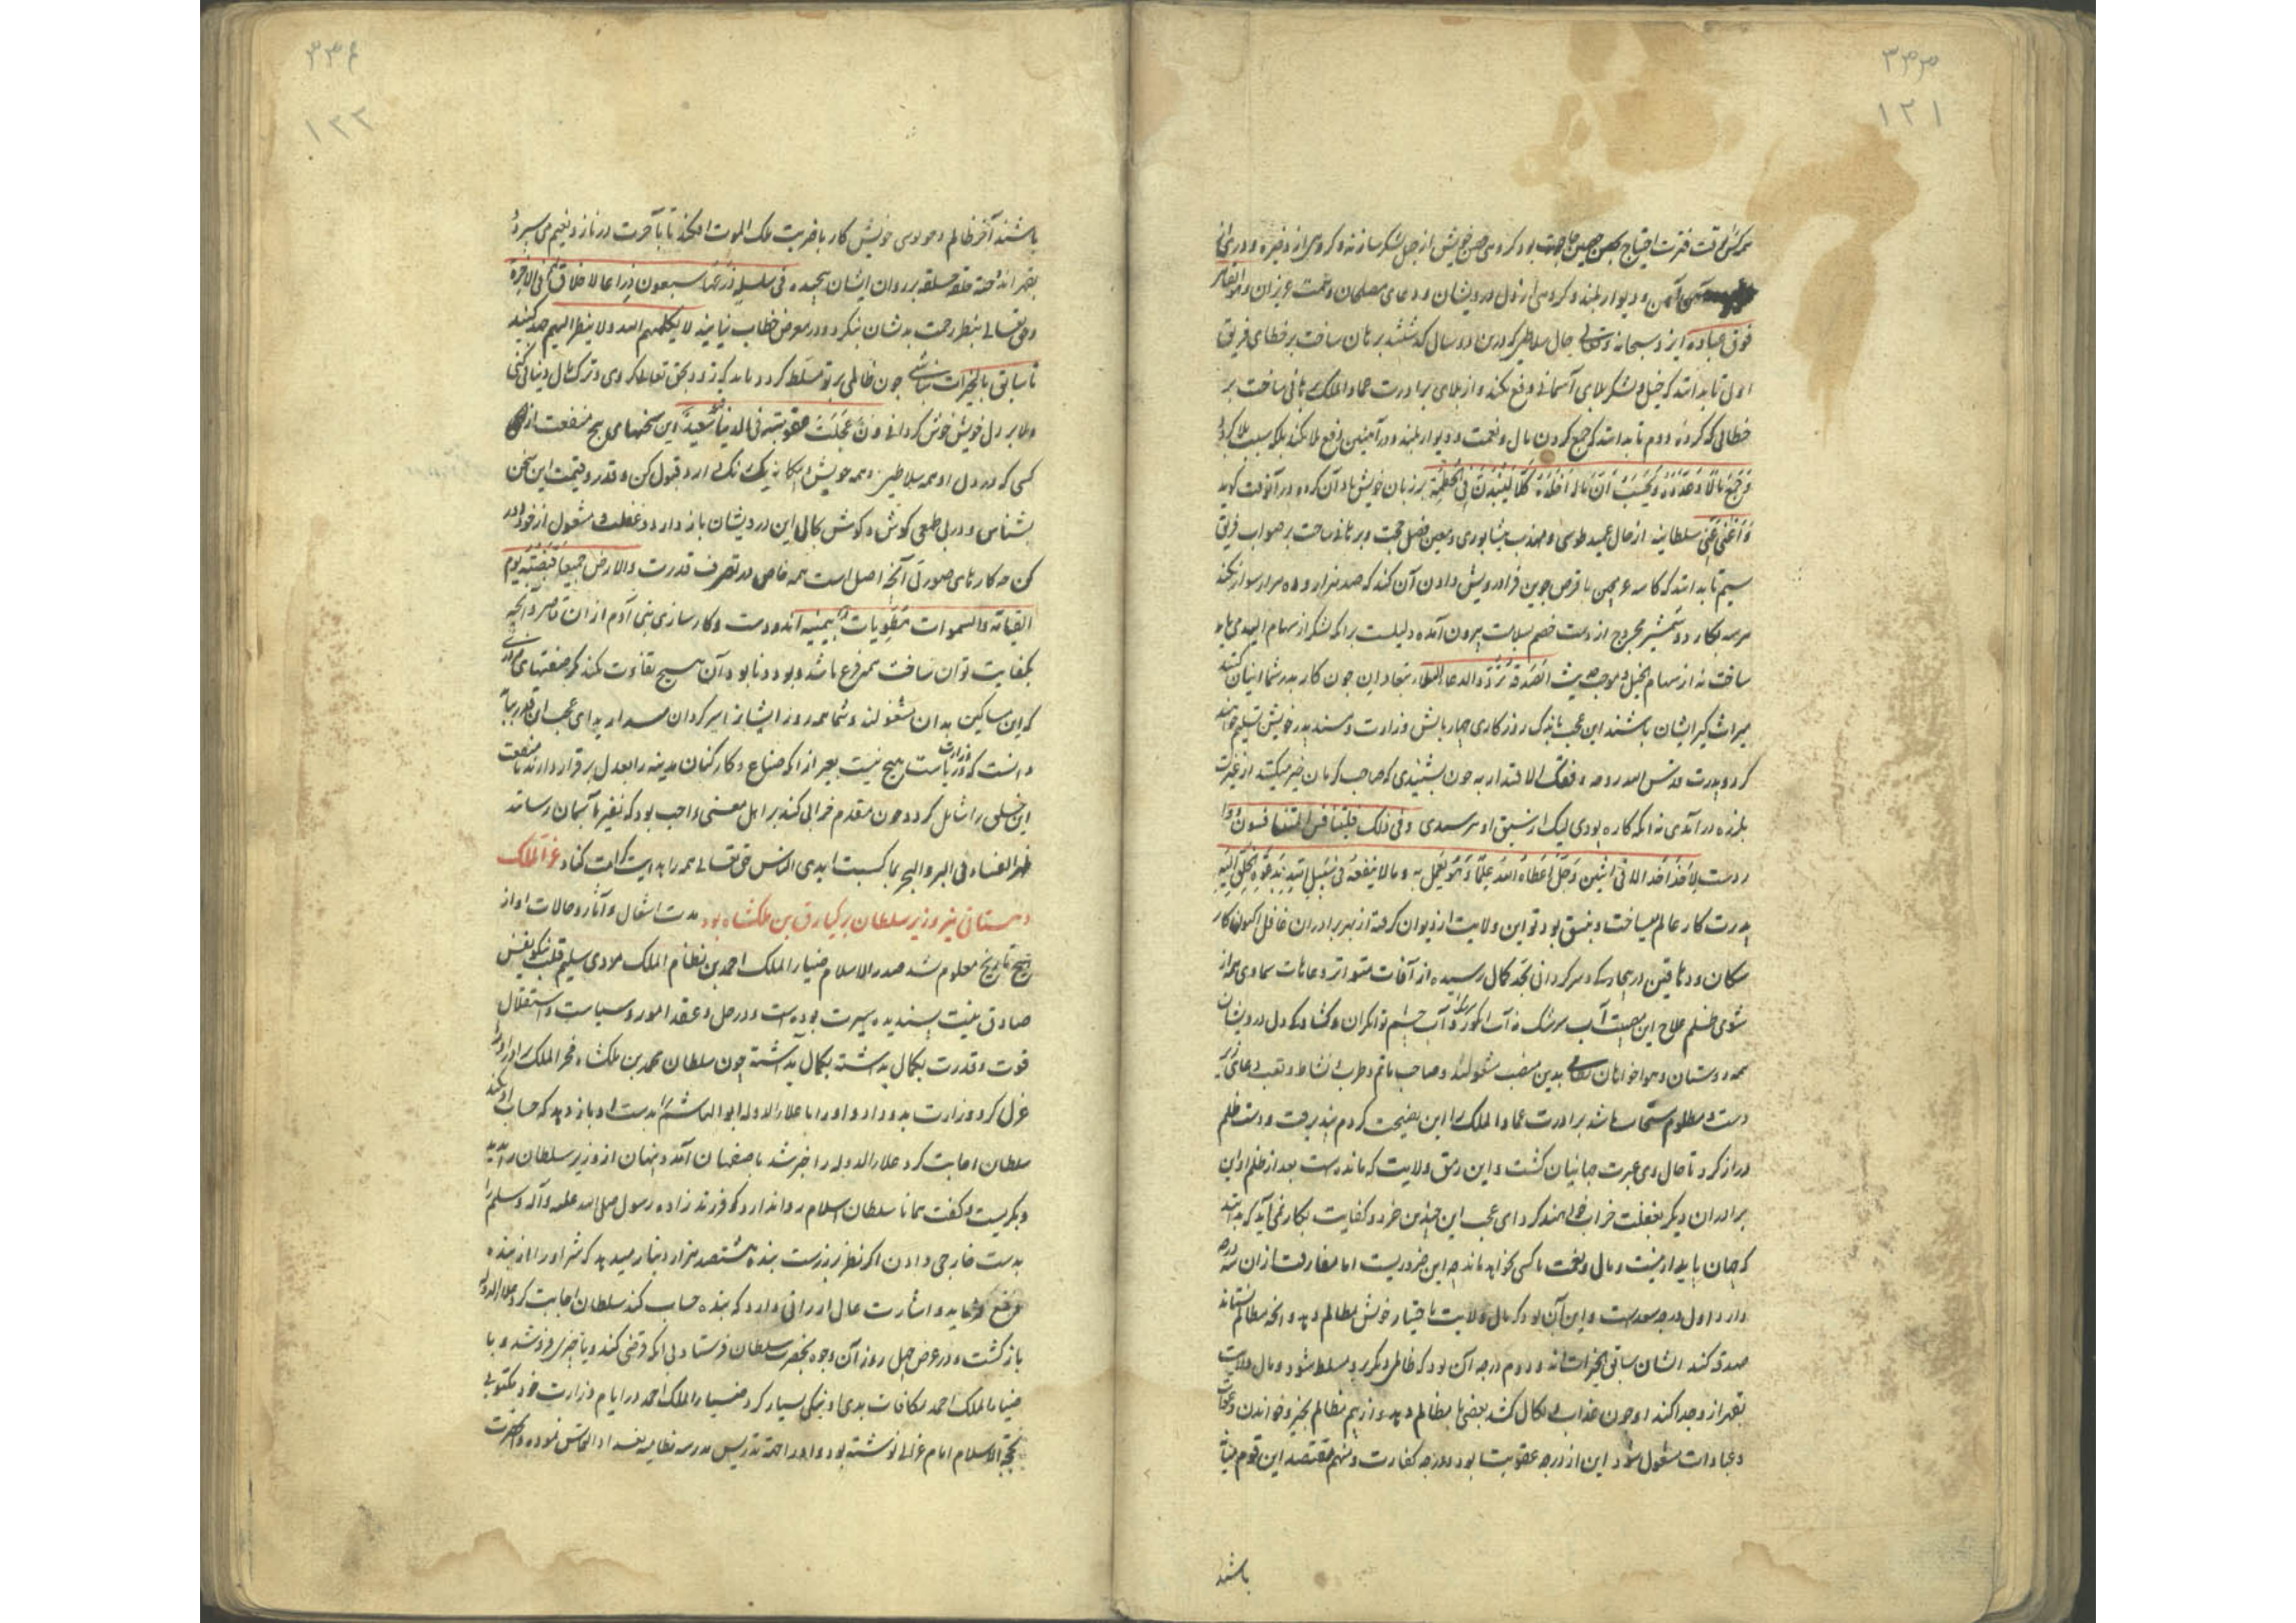 ۳۳۳
۱۲۱
هر کس بوقت فترت احتیاج بحصن حصین بود کروهی حصن خویش از خیل و لشکر سازند و کروهی از ذخیره و
آهن و دیوار بلند و کروهی از دل درویشان و دعای مصلحان و همت عزیزان و هو القاهر
فوق عباده ایزد سبحانه و تعالی حال سلاطین که درین دو سال کذشتند برهان ساخت بر خطای فریق
اول تا بدانند که خیل و لشکر بلای آسمانی دفع نکند و از بلای برادرت عماد الملک برهانی ساخت بر
خطای کروه دوم تا بدانند که جمع کردن مال و نعمت و دیوار بلند و در آهنین دفع بلا نکند بلکه سبب بلا کردد
جمع مالا و عدده یحسب ان ماله اخلده کلا لینبذن فی الحطمة بر زبان خویش یاد آن کرده در آنوقت کوید
ما اغنی عنی سلطانیه از حال عمید طوسی و مهذب نیشابوری و معین فضل حجت و برهانی ساخت بر صواب فریق
سیم تا بدانند که کاسه با قرص جوین فرا درویش دادن آن کند که صد هزار دینار و ده هزار سوار نکند
هر سه بکار و شمشیر مجروح از دست خصم بسلامت بیرون آمده دلیلست برانکه لشکر از سهام اللیل باید
ساخت نه از سهام الخیل و موجب حدیث الصدقة ترد و الدعاء البلاء بنجاد این چون کار پدر شما ایشان کنند
میراث کیر ایشان باشند این عجب ماند که روزکاری چهار بالش وزارت و مسند پدر خویش تسلیم خواهند
کرد و پدرت قدس الله روحه وفقک الاقتدار به چون بشنیدی که صاحب کرمان خیر میکند از غیرت
بلرزه در آمدی نه انکه کاره بودی لیک از سبق او ترسیدی و فی ذلک فلیتنافس المتنافسون
در دست لا حسد الا فی اثنین رجل اعطاه الله علما و هو یعمل به و مالا ینفقه فی سبیل الله
پدرت کار عالم میساخت و بنسق بود تو این ولایت از دیوان کرفته از بهر برادران غافل اکنون کار
سکان و دهاقین در بیچارکی و سرکردانی بحد کمال رسیده از آفات متواتر و عاهات سماوی و از
شومی ظلم علاج این مصیبت آب سرشک نه آب انکور و آب چشم توانکران و کشاد دل درویشان
همه دوستان و هواخواهان بدین مصیب مشغولند و صاحب ماتم و طرب نشاط و تعب
دست مظلوم مستجاب باشد برادرت عماد الملک را این نصیحت کردم نپذیرفت و دست ظلم
دراز کرد تا حال وی عبرت جهانیان کشت و این رمق ولایت که مانده است بعد از ظلم او این
برادران دیکر بغفلت خراب خواهند کرد ای عجب این چندین خرد و کفایت بکار نمی آید که بدانند
که جهان پایدار نیست و مال و نعمت با کسی نخواهد ماند چه این ضروریست اما مفارقت ازان سه درجه
دارد اول درجه سعداست و این آن بود که مال ولایت باختیار خویش مظالم دهد و انچه مظالم نستاند
صدقه کند ایشان سابق الخیرات اند و دوم درجه آن بود که ظالمی دیکر برو مسلط شود و مال ولایت
بقهر از وجدا کند او چون عذاب بی نکال کشد بعضی بمظالم دهد و از بیم مظالم بخیر و خواندن
و عبادات مشغول شود این از درجه عقوبت بود درجه کفارت و منهم مقتصد این قوم
باشند
۳۳۴
۱۲۲
باشند آخر ظالم و موسوی خویش کار با ضربت ملک الموت افکند تا بآخرت در ناز و نعیم می سپرد
بقهر حلقه حلقه بر روان ایشان پیچیده فی سلسلة ذرعها سبعون ذراعا لا خلاق لهم فی الاخرة
و حق تعالی بنظر رحمت بدیشان ننکرد و در معرض خطاب نیایند لا یکلمهم الله و لا ینظر الیهم جهد کنید
تا سابق بالخیرات باشی چون ظالمی بر تو مسلط کردد باید که زود بحق تعالی کروی و ترک مال دنیا کنی
و بلا بر دل خویش خوش کردانی و من عجلت عقوبته فی الدنیا سعید این سخنهای پیچ منفعت از
کسی که در دل او همه سلاطین و همه خویش و بیکانه یک رنک دارد قبول کن و قدر و قیمت این سخن
بشناس و در بی طمعی کوش و کوش بکمال این درویشان باز دار و غفلت مشغول از خود دور
کن چه کارهای صورتی آنچه اصل است همه خاص در تصرف قدرت و الارض جمیعا قبضته یوم
القیامة و السموات مطویات بیمینه اند و دست و کارسازی بنی آدم ازان قاصر و آنچه
بکفایت توان ساخت همه فرع باشد و بود و نابود آن هیچ تفاوت نکند کر صنعتهای
که این مساکین بدان مشغولند و شما همه روز ایشانرا سرکردان میدارید ای عجب این قدر بباید
دانست که وزارت و ریاست هیچ نیست بغیر ازانکه صناع و کارکنان مدینه را بعدل برقرار دارند تا منفعت
این خلق را شامل کردد چون مقدم خرابی کند بر اهل معنی واجب بود که نفیر بآسمان رسانند
ظهر الفساد فی البر و البحر بما کسبت ایدی الناس حق تعالی همه را هدایت کرامت کناد عز الملک
دهستانی نیز وزیر سلطان برکیارق بن ملکشاه بود مدت اشغال و آثار و حالات او از
هیچ تاریخ معلوم نشد صدر الاسلام ضیاء الملک احمد بن نظام الملک مردی سلیم قلب نیکو نفس
صادق نیت پسندیده سیرت بوده است و در حل و عقد امور و سیاست و استقلال
قوت و قدرت بکمال نداشته چون سلطان محمد بن ملکشاه فخر الملک برادر او را
عزل کرد وزارت بدو داد و او را با علاء الدوله ابو الهاشم بدست او باز دهد که حساب او بکند
سلطان اجابت کرد علاء الدوله را خبر شد باصفهان آمد و پنهان از وزیر سلطان را بدید
و بکریست و کفت همانا سلطان اسلام روا ندارد که فرزند زاده رسول صلی الله علیه و آله و سلم را
بدست خارجی دادن اکر نظر بر زرست بنده هشتصد هزار دینار میدهد که شر او را از بنده
مرفع فرماید و اشارت عالی ارزانی دارد که بنده حساب کند سلطان اجابت کرد علاء الدوله
باز کشت و در عرض چهل روز آن وجوه بحضرت سلطان فرستاد بی آنکه قرضی کند و یا چیزی فروشد و با
ضیاء الملک احمد مکافات بدی او بنیکی بسیار کرد ضیاء الملک احمد در ایام وزارت خود مکتوبی
بحجة الاسلام امام غزالی نوشته بود و او را جهة تدریس مدرسه نظامیه بغداد التماس نموده و آنحضرت